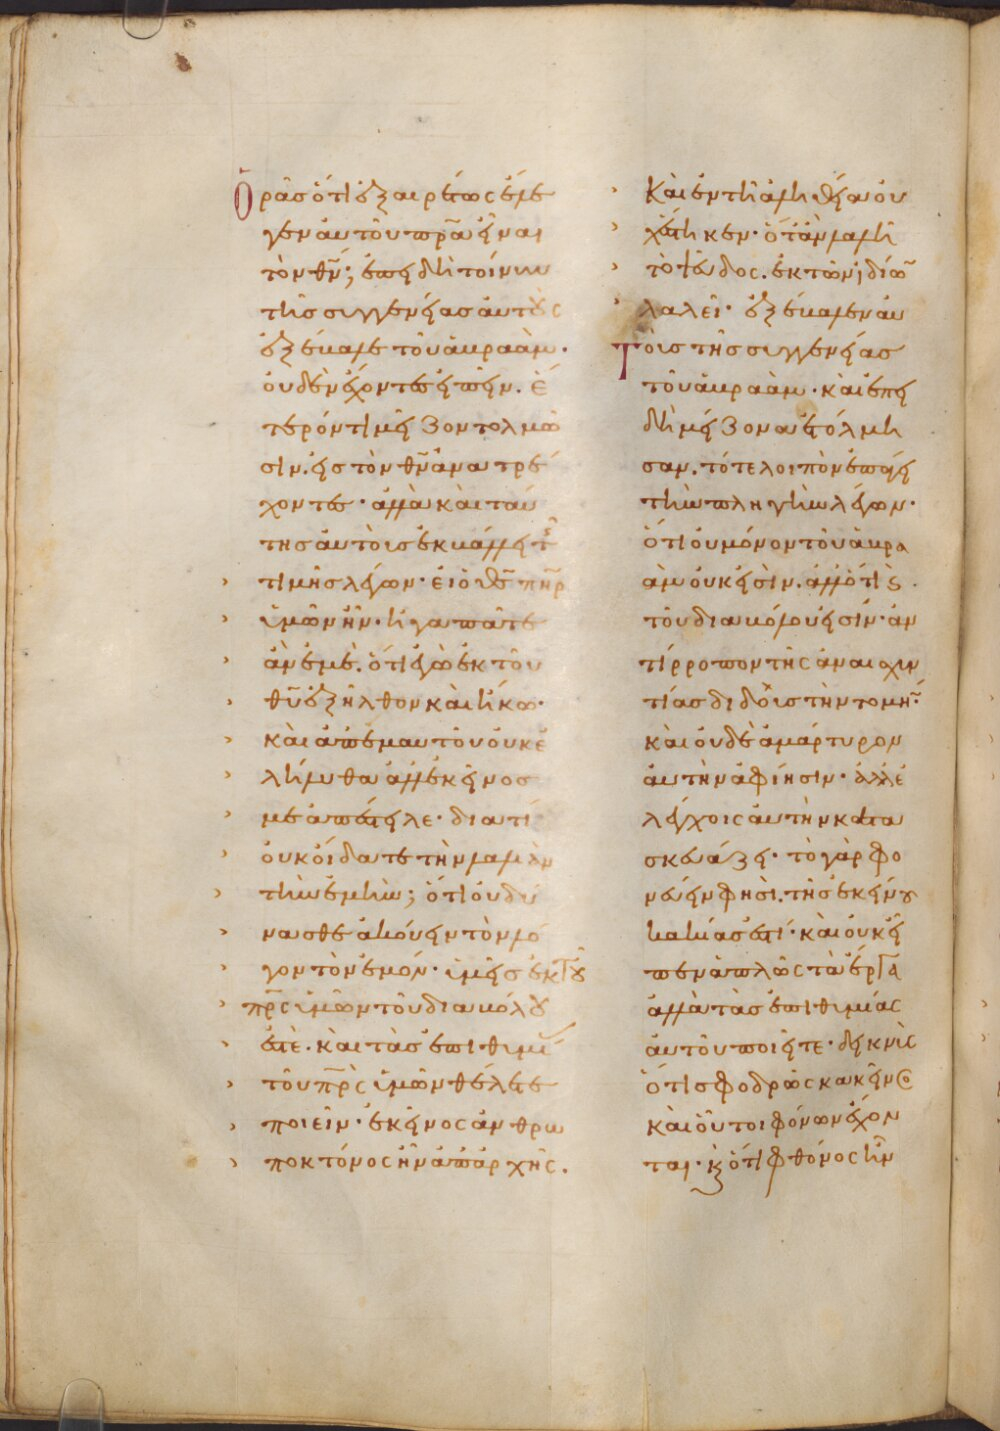 Ὁρᾶσ ὅτι ἐξαιρέτως ἔλε
γεν αὐτοῦ πρ̅α εἶναι
τὸν θν̅; ἐπειδὴ τοίνυν
τῆσ συγγενείασ αὐτοὺς
ἐξέβαλε τοῦ ἀβραὰμ·
οὐδὲν ἔχοντεσ εἰπεῖν. ἕ
τερόν τι μεῖζον τολμῶ
σιν. εἰσ τὸν θν̅ ἀνατρέ
χοντεσ· ἀλλὰ καὶ ταύ
τησ αὐτοὺσ ἐκβάλλει τῆ
τιμῆσ λέγων· εἰ ὁ θσ̅ πη̅ρ
ὑμῶν ἦν· ἠγαπᾶτε
ἂν ἐμὲ. ὅτι ἐγὼ ἐκ τοῦ
θυ̅ ἐξῆλθον καὶ ἥκω·
καὶ ἀπ' ἐμαυτοῦ οὐκ ἐ
λήλυθα ἀλλ' ἐκεῖνοσ
με ἀπέστειλε· διατί
οὐκ οἴδατε τὴν λαλιὰν
τὴν ἐμὴν; ὅτι οὐ δύ
νασθε ἀκούειν τὸν λό
γον τὸν ἐμόν· ὑμεῖσ ἐκ τοῦ
πρ̅ς ὑμῶν τοῦ διαβόλου
ἐστὲ. καὶ τὰσ ἐπιθυμί
τοῦ πρ̅ὸς ὑμῶν θέλετε
ποιεῖν· ἐκεῖνος ἀνθρω
ποκτόνος ἦν ἀπ' ἀρχῆς.
καὶ ἐν τῆ ἀληθεία οὐ
χ' ἕστηκεν· ὅταν λαλῆ
τὸ ψεῦδος. ἐκ τῶν ἰδίω̅
λαλεῖ· ἐξέβαλεν αὐ
τοὺσ τῆσ συγγενείασ
τοῦ ἀβραὰμ· καὶ ἐπει
δὴ μείζονα ἐτόλμη
σαν. τότε λοιπὸν ἐπάγει
τὴν πληγὴν λέγων·
ὅτι οὐ μόνον τοῦ ἀβρα
ὰμ οὐκ εἰσὶν. ἀλλ' ὅτι καὶ
τοῦ διαβόλου εἰσίν· ἀν
τίρροπον τῆς ἀναισχυν
τίασ διδοὺσ τὴν τομή̅·
καὶ οὐδὲ ἀμάρτυρον
αὐτὴν ἀφίησιν· ἀλλ' ἐ
λέγχοις αὐτὴν κατα
σκευάζει· τὸ γὰρ φο
νεύειν φησὶ. τῆσ ἐκείνου
κακίασ ἐστί· καὶ οὐκ εἶ
πεν ἁπλῶς τὰ ἔργα
ἀλλὰ τὰσ ἐπιθυμίας
αὐτοῦ ποιεῖτε· δεικνὺς
ὅτι σφοδρῶς κἀκεῖνος
καὶ οὗτοι φόνων ἔχον
ται· καὶ ὅτι φθόνος ἦν